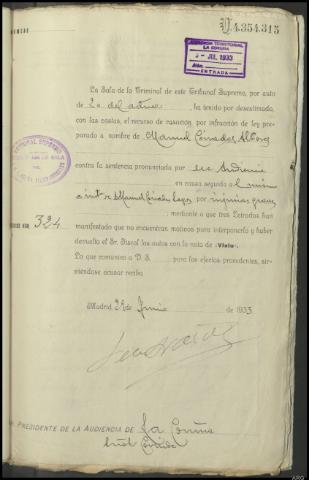 4.354.315
AUDIENCIA TERRITORIAL
LA CORUÑA
JUL. 1933
ENTRADA
La Sala de lo Criminal de este Tribunal Supremo, por auto
de 20 del actual ha tenido por desestimado,
con las costas, el recurso de casación, por infracción de ley pre-
parado a nombre de Manuel
contra la sentencia pronunciada por esa Audiencia
en causa seguida al mismo
a inst.ª de Manuel por injurias graves
; mediante a que tres Letrados han
manifestado que no encuentran motivos para interponerlo y haber
devuelto el Sr. Fiscal los autos con la nota de «Visto».
Lo que comunico a V. S. para los efectos procedentes, sir-
viéndose acusar recibo.
NÚM. 324
Madrid de Junio de 1933
PRESIDENTE DE LA AUDIENCIA DE La Coruña